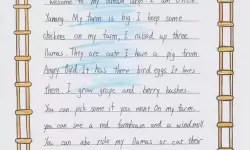 Welcome to my dream farm I am Uncle
Yummy. My farm is big. I keep some
chickens on my farm, I raised up three
llamas. They are cute I have a pig from
Angry Bird. It has three bird eggs. It loves
them. I grow grape and berry bushes.
You can pick some if you want. On my farm,
you can see a red farmhouse and a windmill.
You can also ride my llamas or eat their